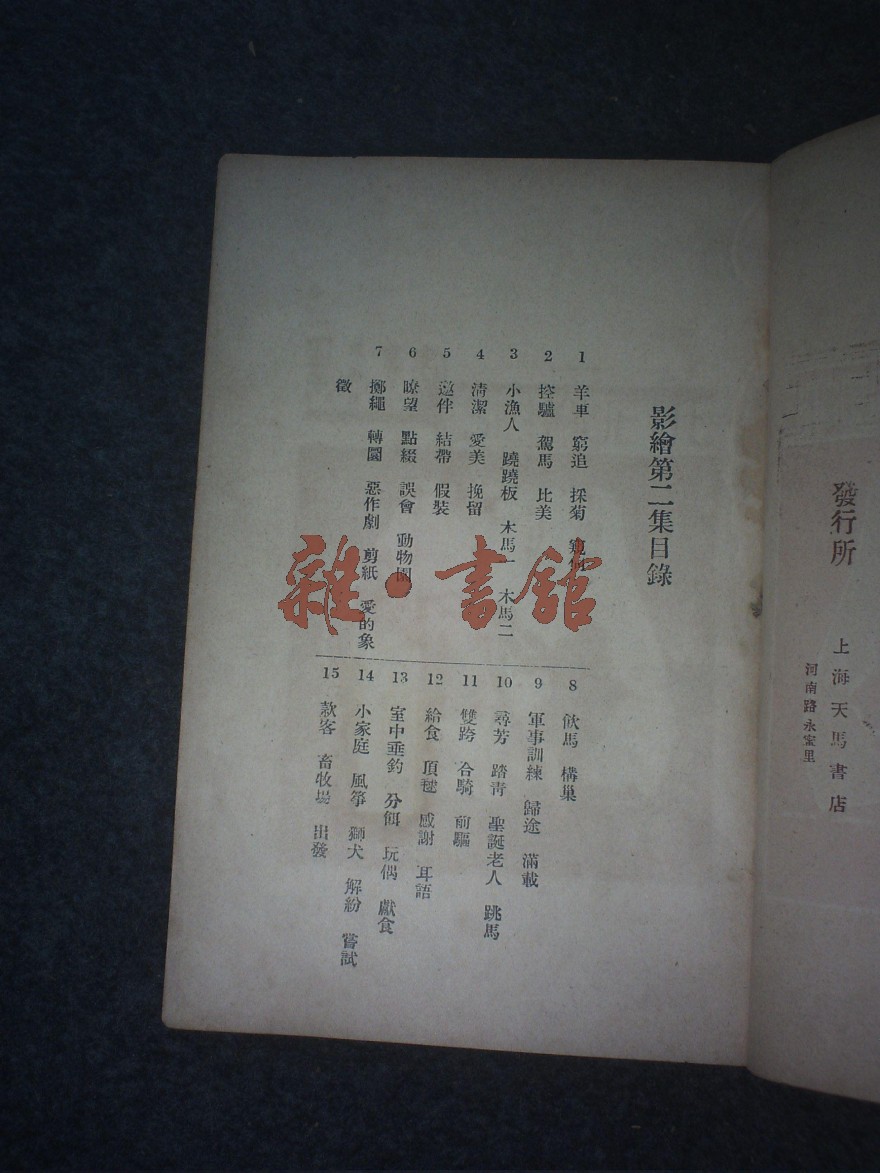 發行所
上海天馬書店
河南路永安里
影繪第二集目錄
1 羊車 窮追 採菊
2 控驢 駕馬 比美
3 小漁人 蹺蹺板 木馬一 木馬二
4 清潔 愛美 挽留
5 邀伴 結帶 假裝
6 瞭望 點綴 誤會 動物園
7 擲繩 轉圜 惡作劇 剪紙 愛的象
徵
8 飲馬 構巢
9 軍事訓練 歸途 滿載
10 尋芳 踏青 聖誕老人 跳馬
11 雙跨 合騎 前驅
12 給食 頂毬 感謝 耳語
13 室中垂釣 分餌 玩偶 獻食
14 小家庭 風箏 獅犬 解紛 嘗試
15 款客 畜牧場 出發
雜·書館